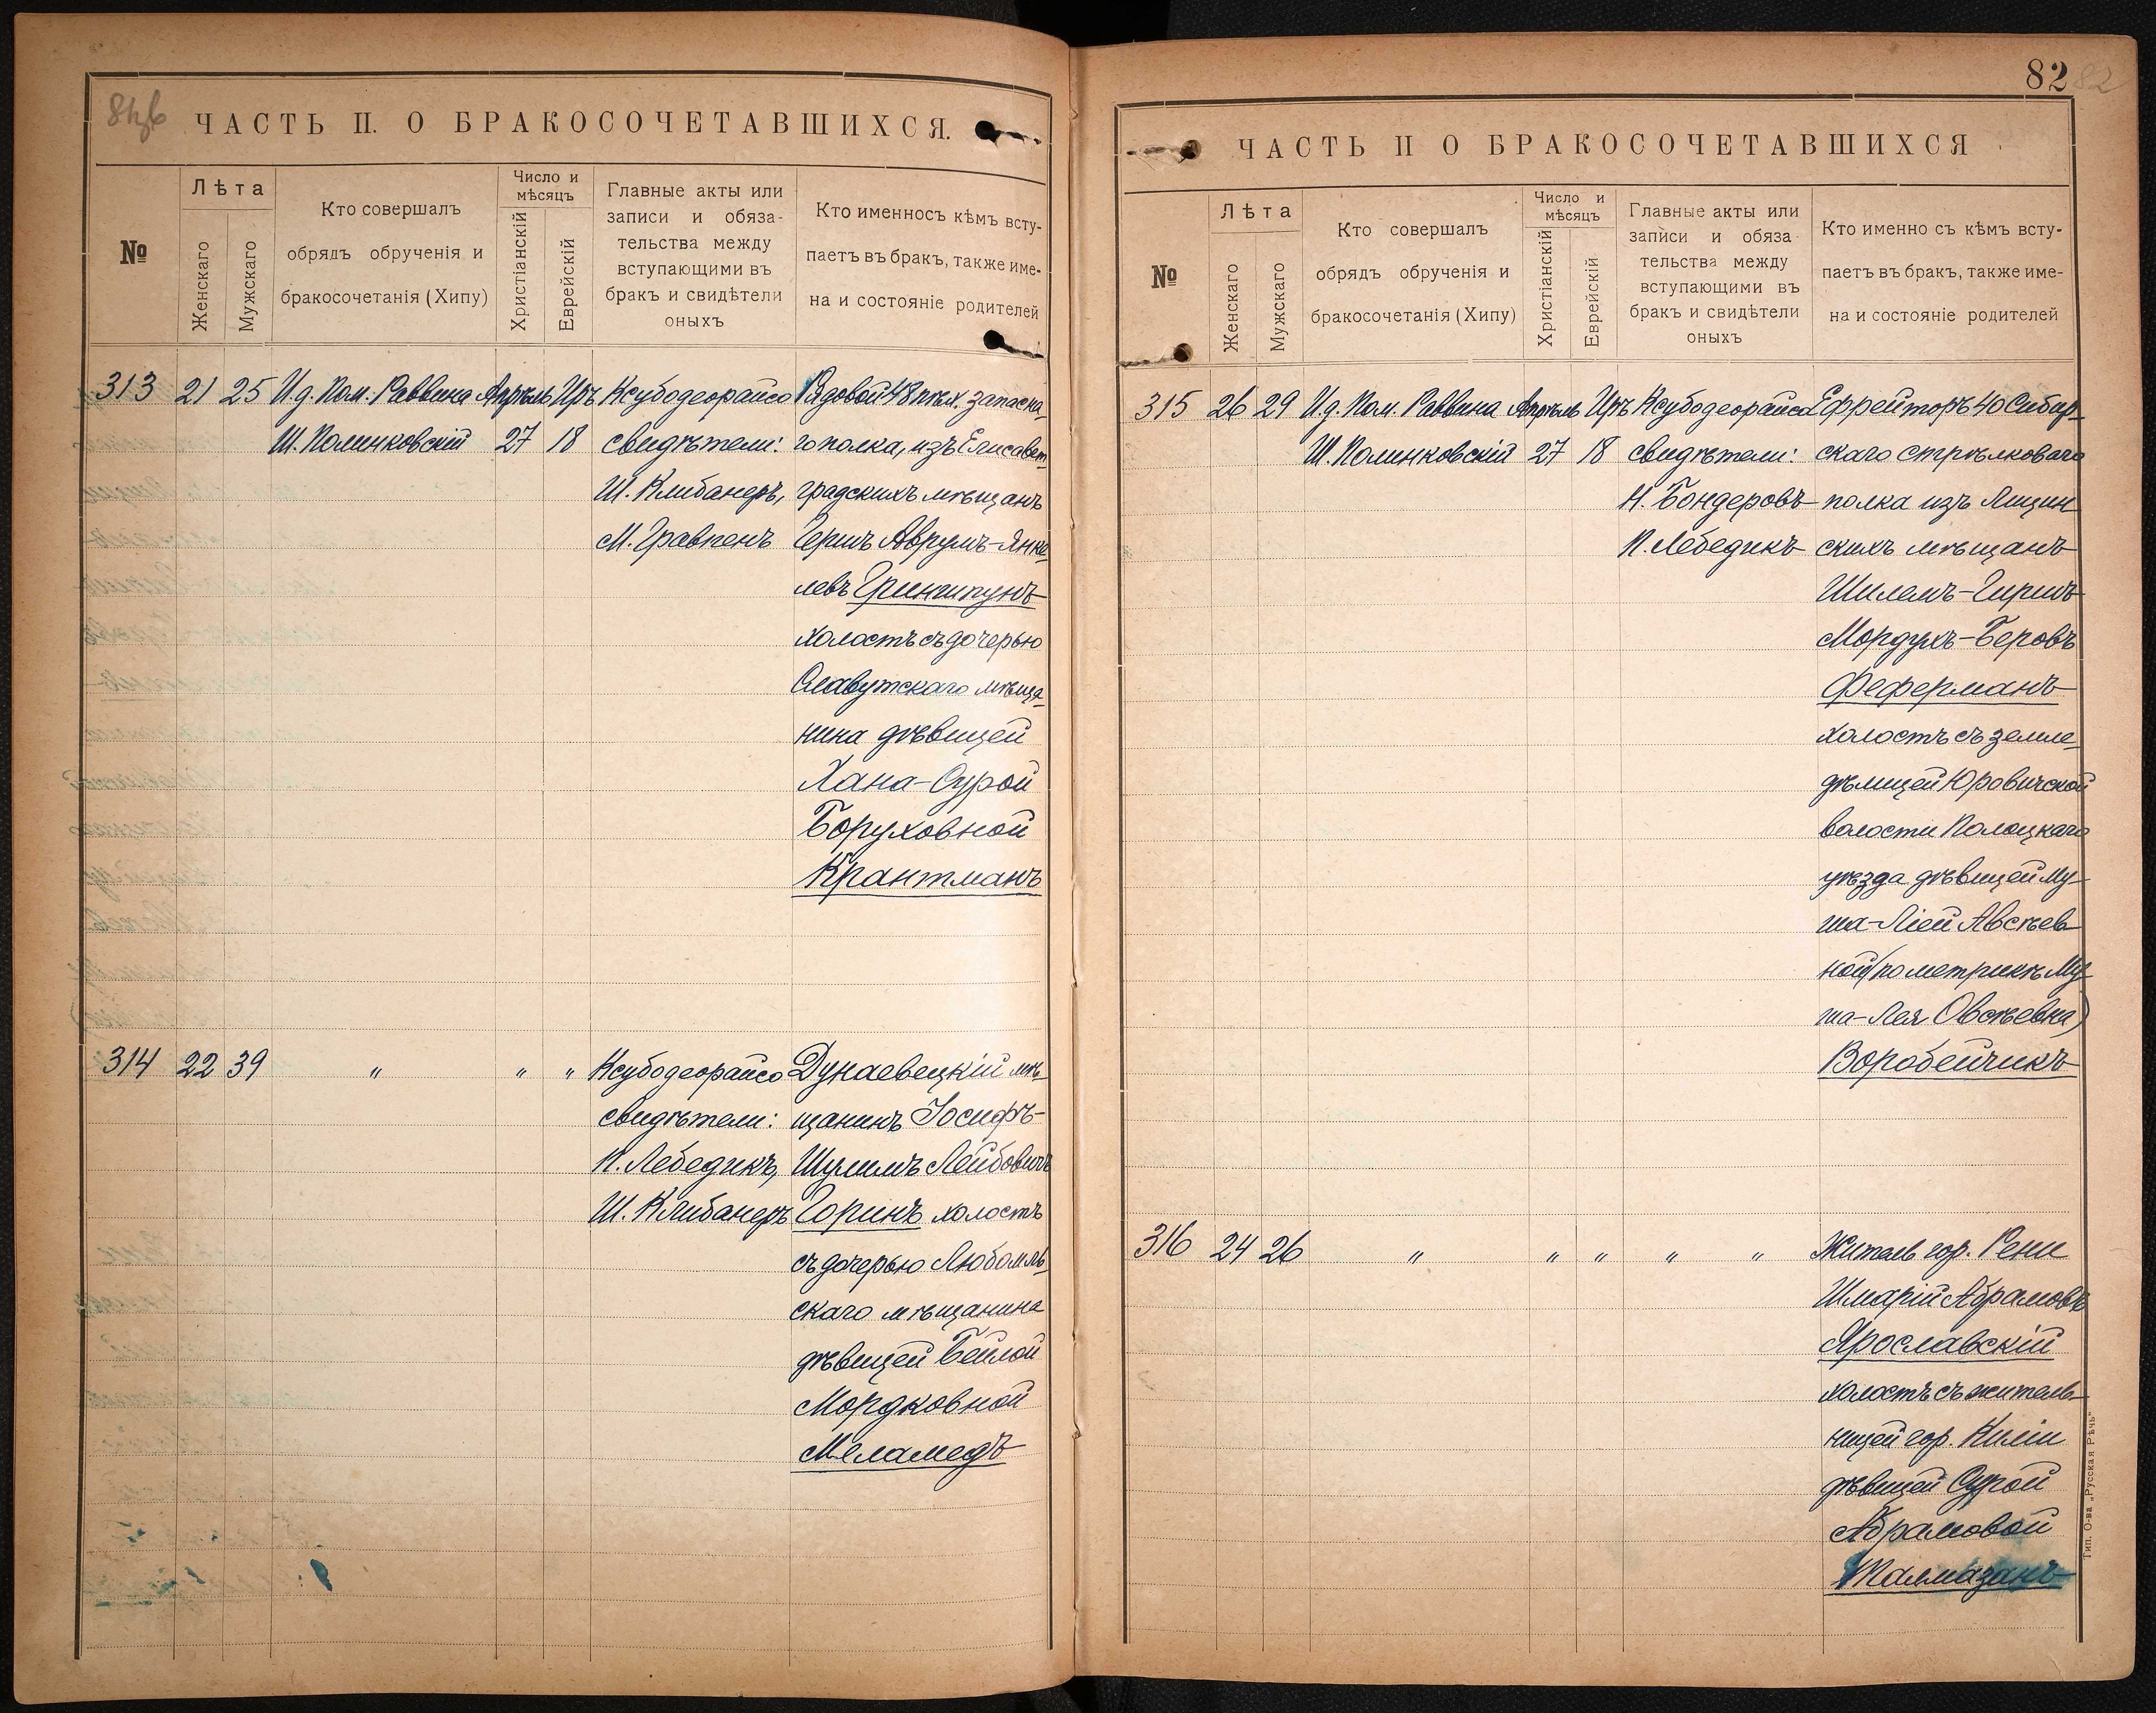 ЧАСТЬ II. О БРАКОСОЧЕТАВШИХСЯ.
№
Лѣта
Женскаго
Мужскаго
Кто совершалъ
обрядъ обрученія и
бракосочетанія (Хипу)
Число и
мѣсяцъ
Христіанскій
Еврейскій
Главные акты или
записи и обяза-
тельства между
вступающими въ
бракъ и свидѣтели
оныхъ
Кто именносъ кѣмъ всту-
паетъ въ бракъ, также име-
на и состояніе родителей
313 21 25 И.д. Пом. Раввина Апрѣль Иръ Ксубодеорайсо Рядовой 48 пѣх. запасна-
Ш. Полинковскій 27 18 свидѣтели: го полка, изъ Елисавет-
Ш. Клибанеръ, градскихъ мѣщанъ
М. Гравпенъ Гершъ Аврумъ-Янке-
левъ Гриншпунъ
холостъ съ дочерью
Славутскаго мѣща-
нина дѣвицей
Хана-Сурой
Боруховной
Крантманъ
314 22 39 " " " Ксубодеорайсо Дунаевецкій мѣ-
свидѣтели: щанинъ Іосифъ-
П. Лебедикъ, Шулимъ Лейбовичъ
Ш. Клибанеръ Горинъ холостъ
съ дочерью Любомль-
скаго мѣщанина
дѣвицей Бейлой
Мордковной
Меламедъ
82
82
ЧАСТЬ II О БРАКОСОЧЕТАВШИХСЯ
№
Лѣта
Женскаго
Мужскаго
Кто совершалъ
обрядъ обрученія и
бракосочетанія (Хипу)
Число и
мѣсяцъ
Христіанскій
Еврейскій
Главные акты или
записи и обяза
тельства между
вступающими въ
бракъ и свидѣтели
оныхъ
Кто именно съ кѣмъ всту-
паетъ въ бракъ, также име-
на и состояніе родителей
315 26 29 И.д. Пом. Раввина Апрѣль Иръ Ксубодеорайсо Ефрейторъ 40 Сибир-
Ш. Полинковскій 27 18 свидѣтели: скаго стрѣлковаго
Н. Бондеровъ полка изъ Лицин-
П. Лебедикъ скихъ мѣщанъ
Шилемъ-Гиршъ
Мордухъ-Беровъ
Феферманъ
холостъ съ земле-
дѣлицей Юровичской
волости Полоцкаго
уѣзда дѣвицей Му-
ша-Ліей Авсѣев-
ной (по метрикѣ Му-
ша-Лея Овсѣевна)
Воробейчикъ
316 24 26 " " " " " Житель гор. Рени
Шмарій Абрамовъ
Ярославскій
холостъ съ житель-
ницей гор. Киліи
дѣвицей Сурой
Абрамовой
Талмазанъ
Тип. О-ва „Русская Рѣчь“